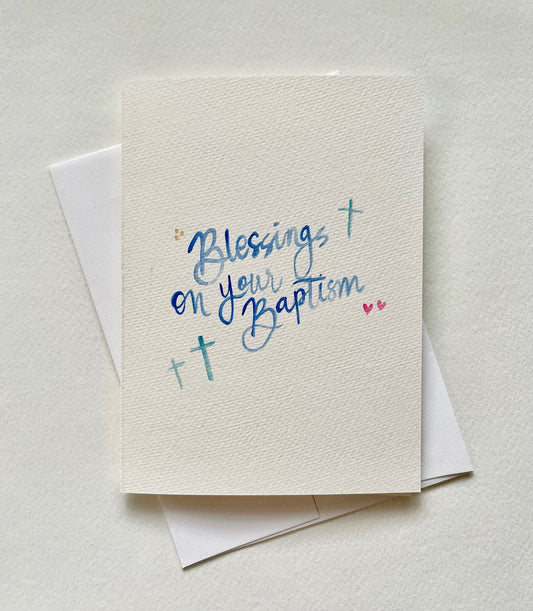 Blessings
on your
Baptism